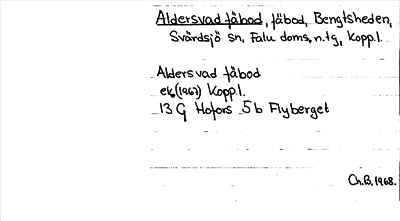 Aldersvad fäbod, fäbod, Bengtsheden,
Svärdsjö sn, Falu doms. n. tg, Kopp. l.
Aldersvad fäbod
ek (1967) Kopp. l.
13 G Hofors 5 b Flyberget
Ch. B. 1968.